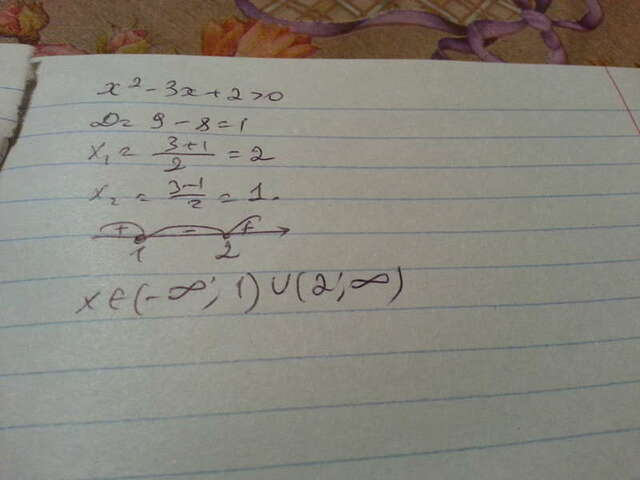 x² - 3x + 2 > 0
D = 9 - 8 = 1
x₁ = (3+1)/2 = 2
x₂ = (3-1)/2 = 1.
+ - +
1 2
x ∈ (-∞; 1) ∪ (2; ∞)